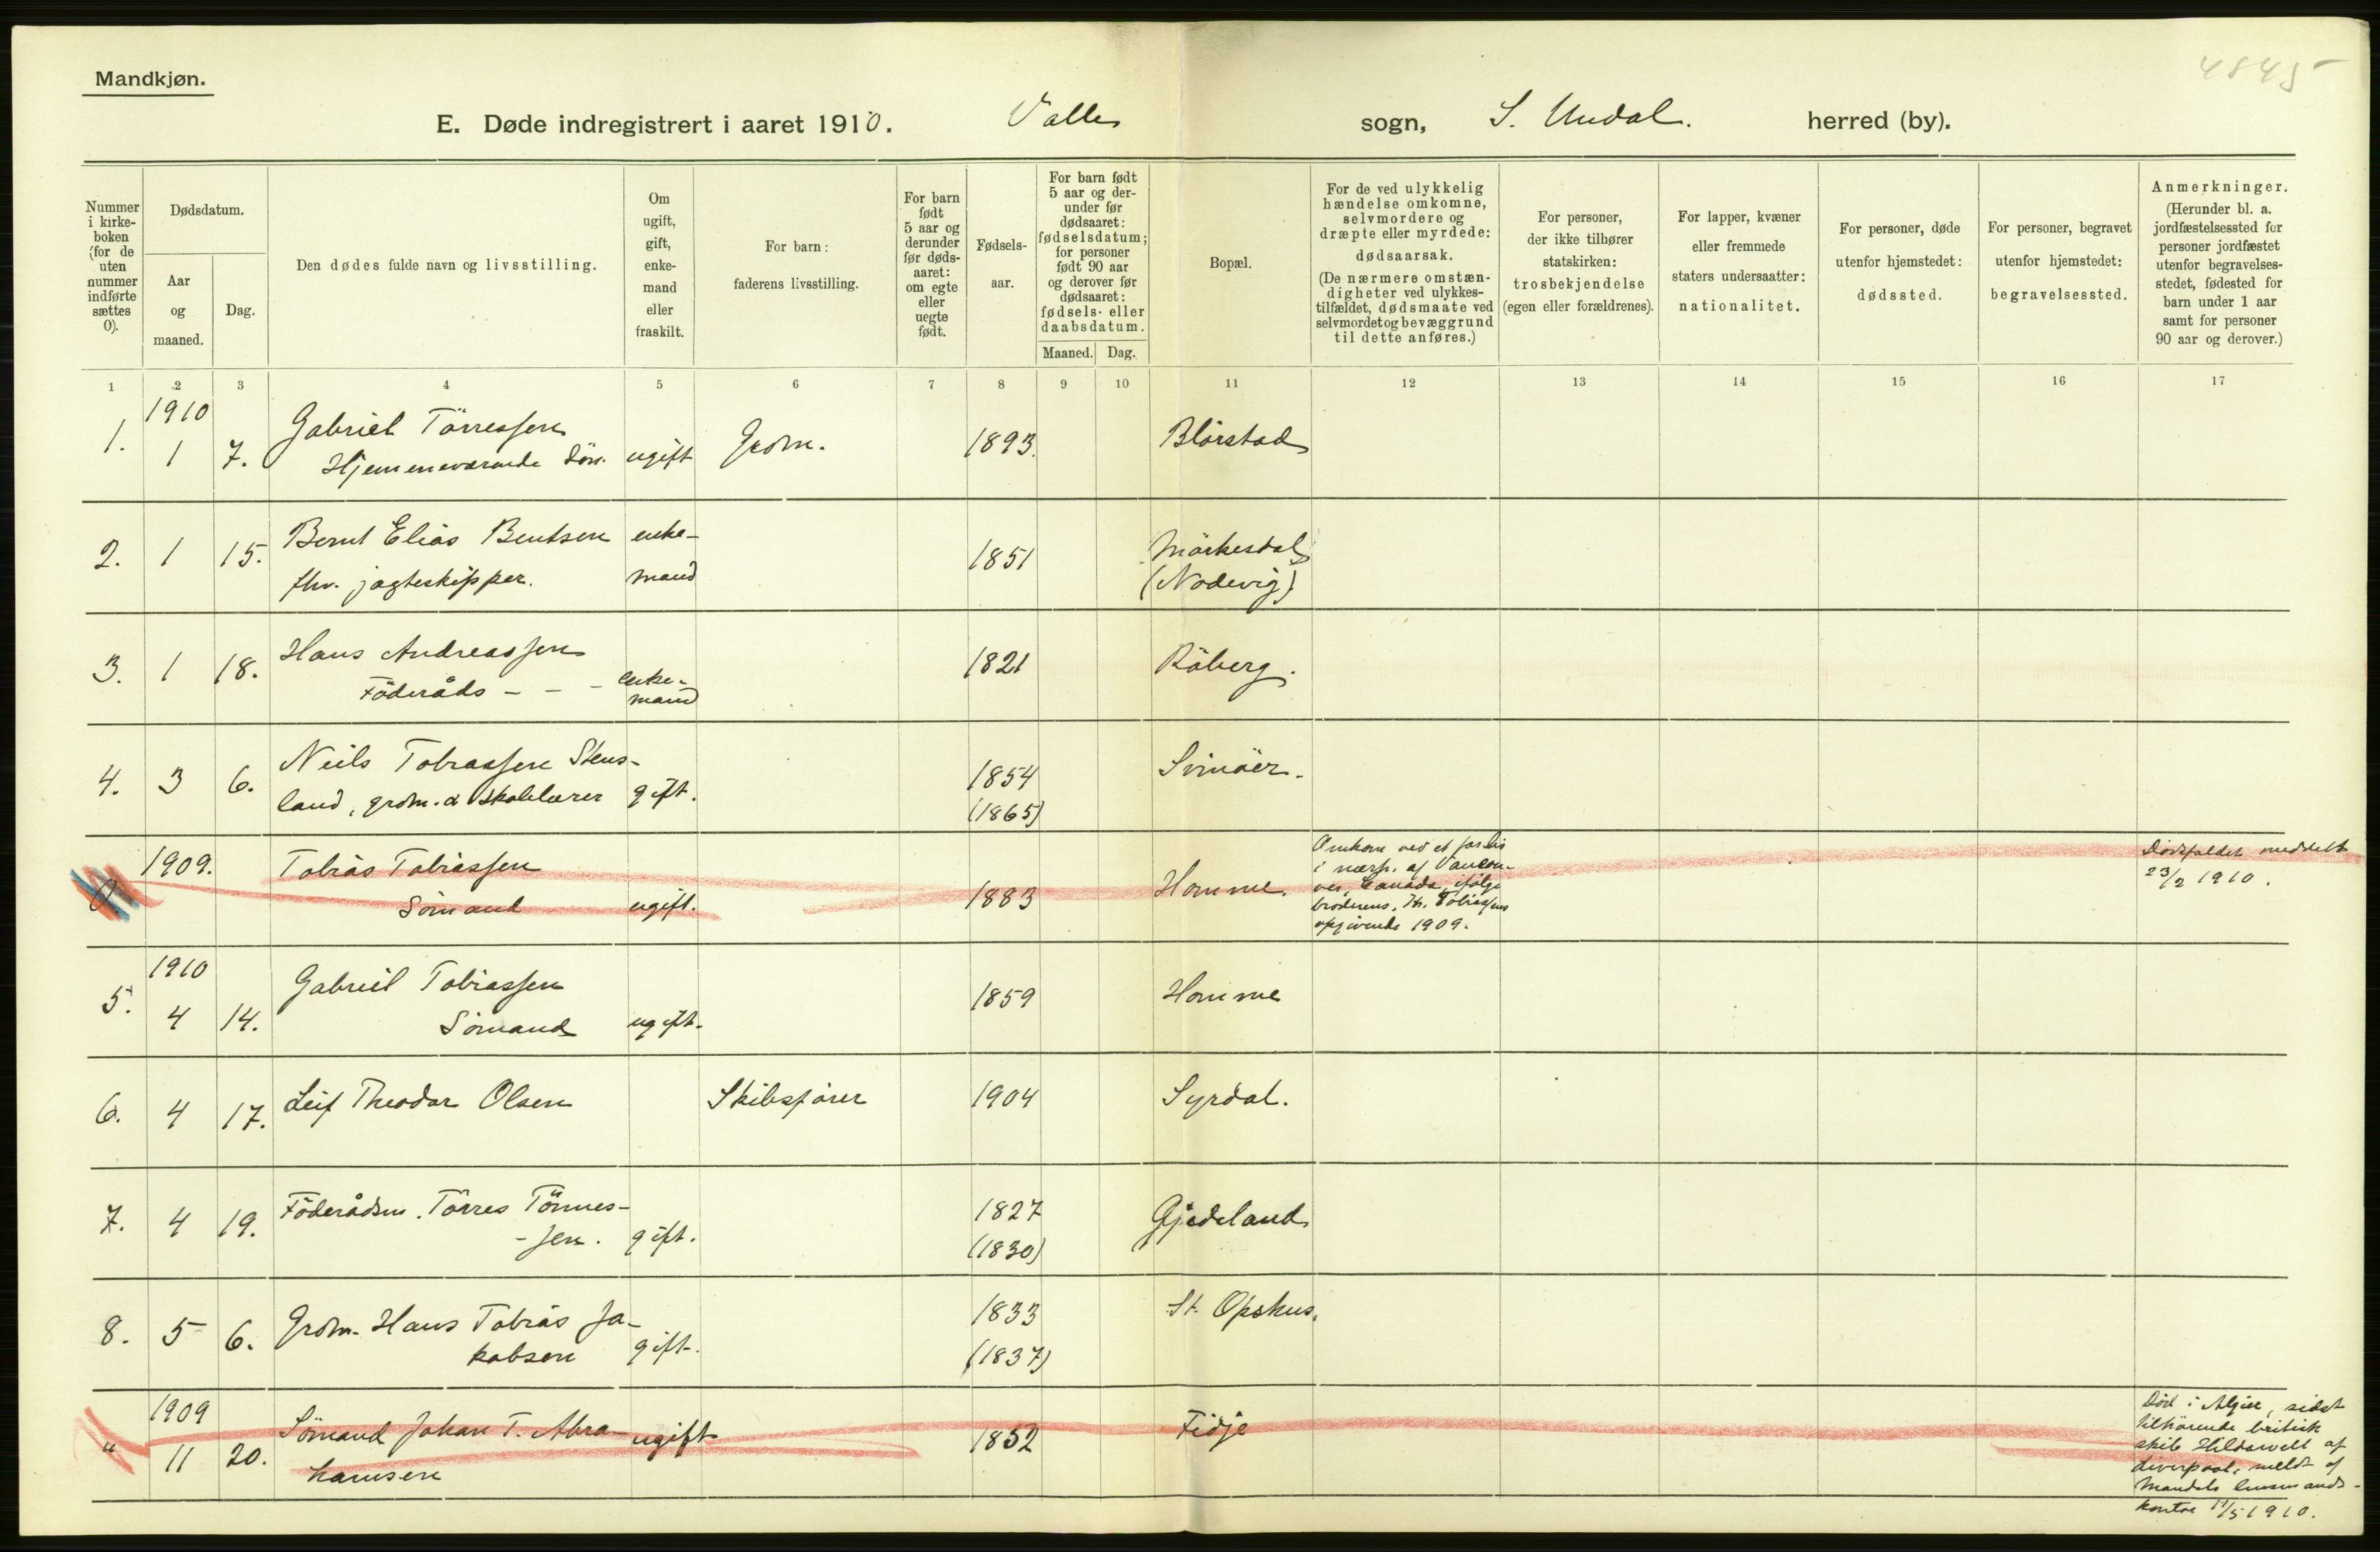 4845
Mandkjøn.
E. Døde indregistrert i aaret 1910. Valle sogn, S. Undal. herred (by).
Nummer
i kirke-
boken
(for de
uten
nummer
indførte
sættes
0).
Dødsdatum.
Aar
og
maaned.
Dag.
Den dødes fulde navn og livsstilling.
Om
ugift,
gift,
enke-
mand
eller
fraskilt.
For barn:
faderens livsstilling.
For barn
født
5 aar og
derunder
før døds-
aaret:
om egte
eller
uegte
født.
Fødsels-
aar.
For barn født
5 aar og der-
under før
dødsaaret:
fødselsdatum;
for personer
født 90 aar
og derover før
dødsaaret:
fødsels- eller
daabsdatum.
Maaned. Dag.
Bopæl.
For de ved ulykkelig
hændelse omkomne,
selvmordere og
dræpte eller myrdede:
dødsaarsak.
(De nærmere omstæn-
digheter ved ulykkes-
tilfældet, dødsmaate ved
selvmordet og bevæggrund
til dette anføres.)
For personer,
der ikke tilhører
statskirken:
trosbekjendelse
(egen eller forældrenes).
For lapper, kvæner
eller fremmede
staters undersaatter:
nationalitet.
For personer, døde
utenfor hjemstedet:
dødssted.
For personer, begravet
utenfor hjemstedet:
begravelsessted.
Anmerkninger.
(Herunder bl. a.
jordfæstelsessted for
personer jordfæstet
utenfor begravelses-
stedet, fødested for
barn under 1 aar
samt for personer
90 aar og derover.)
1 2 3 4 5 6 7 8 9 10 11 12 13 14 15 16 17
1910
1. 1 7. Gabriel Törressen
Hjemmeværende Sön. ugift Grdm. 1893. Blörstad
2. 1 15. Bernt Elias Bentsen enke- 1851 Mörkesdal
fhv. jagteskipper. mand (Nodevig)
3. 1 18. Hans Andreassen 1821 Råberg.
Föderåds - - - enke-
mand
4. 3 6. Neils Tobiassen Stens- 1854 Svinöer.
land, grdm. & skolelærer gift. (1865)
1909.
0 Tobias Tobiassen
Sömand ugift. 1883 Homme.
Omkom ved et forlis
i nærh. af Vancou-
ver, Canada, ifölge
broderens, H. Tobiassens
opgivende 1909.
Dödsfaldet meddelt
23/2 1910.
1910
5. 4 14. Gabriel Tobiassen 1859 Homme
Sömand ugift.
6. 4 17. Leif Theodor Olsen Skibsförer 1904 Syrdal.
7. 4 19. Föderådsm. Törres Tönnes- 1827 Gjedeland
-sen. gift. (1830)
8. 5 6. Grdm. Hans Tobias Ja- 1833 St. Opskus.
kobsen gift. (1837)
1909
" 11 20. Sömand Johan T. Abra- ugift 1852 Fidje
hamsen
Död i Algier, sidst
tilhörende britisk
skib Hildswell af
Liverpool, meldt af
Mandals lensmands-
kontor 11/5 1910.